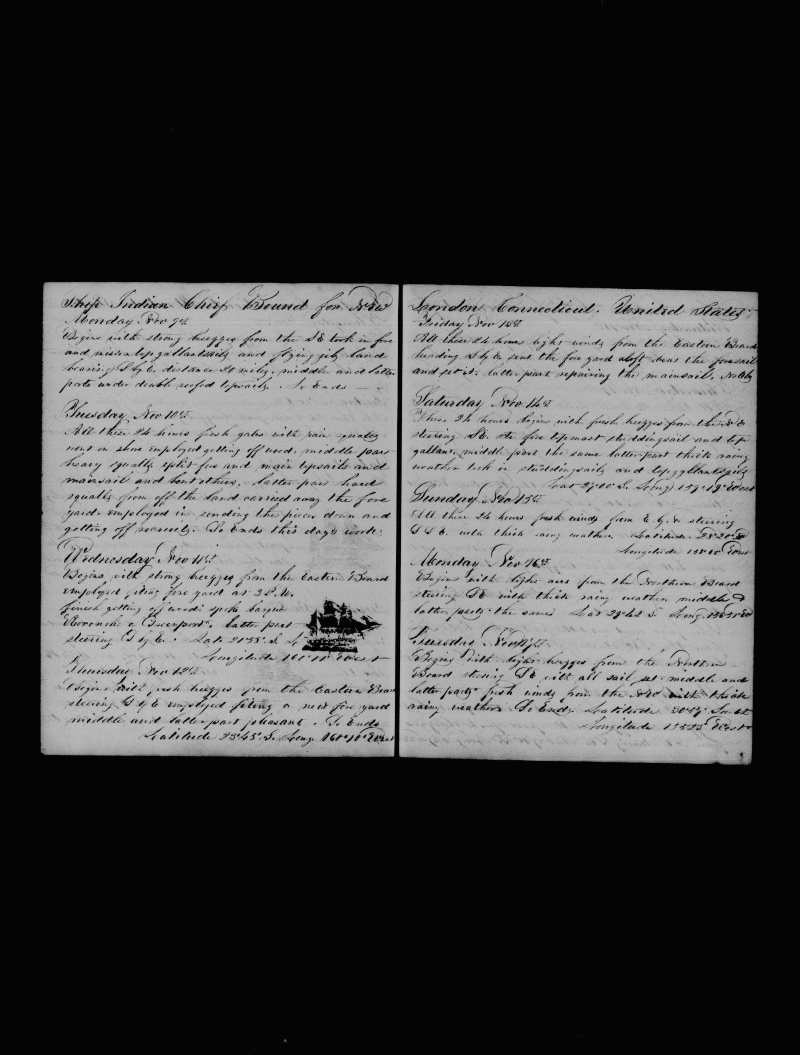 Ship Indian Chief Bound for New
Monday Nov 9th
Begins with strong breezes from the SE took in fore
and mizen topgallantsails and flying jib land
bearing S by E distance miles. middle and latter
parts under double reefed topsails. So Ends
Tuesday Nov 10th
All these 24 hours fresh gales with rain squalls
went on shore employed getting off wood. middle part
heavy squalls split fore and main topsails and
mainsail and bent others. latter part hard
squalls from off the land carried away the fore
yard. employed in sending the pieces down and
getting off recruits. So Ends this days work
Wednesday Nov 11th
Begins with strong breezes from the Eastern Board
employed fixing fore yard at 3 P.M.
finish getting off wood
latter part
steering S by E. Lat. 21°55' S.
Longitude 160°11' West
Thursday Nov 12th
Begins with fresh breezes from the Eastern Board
steering S by E employed fixing a new fore yard
middle and latter part pleasant. So Ends
Latitude 23°45' S. Long. 160°10' West
London Connecticut. United States
Friday Nov 13th
All these 24 hours light winds from the Eastern Board
heading S by E sent the fore yard aloft bent the foresail
and set it. latter part repairing the mainsail.
Saturday Nov 14th
These 24 hours begins with fresh breezes from the
steering SE. set fore topmast studdingsail and top
gallant. middle part the same latter part thick rainy
weather took in studdingsails and topgallantsails
Lat 27°10 S. Long 159°18' West
Sunday Nov 15th
All these 24 hours fresh winds from steering
S S E. with thick rainy weather. Latitude 28°20' S
Longitude West
Monday Nov 16th
Begins with light airs from the Northern Board
steering SE with thick rainy weather middle &
latter parts the same Lat 29°42 S. Long. West
Tuesday Nov 17th
Begins with light breezes from the Northern
Board steering SE with all sail set. middle and
latter parts fresh winds from the with thick
rainy weather. So Ends. Latitude South
Longitude West